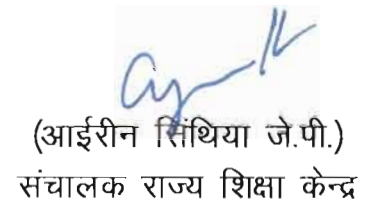 (आईरीन सिंथिया जे.पी.)
संचालक राज्य शिक्षा केन्द्र